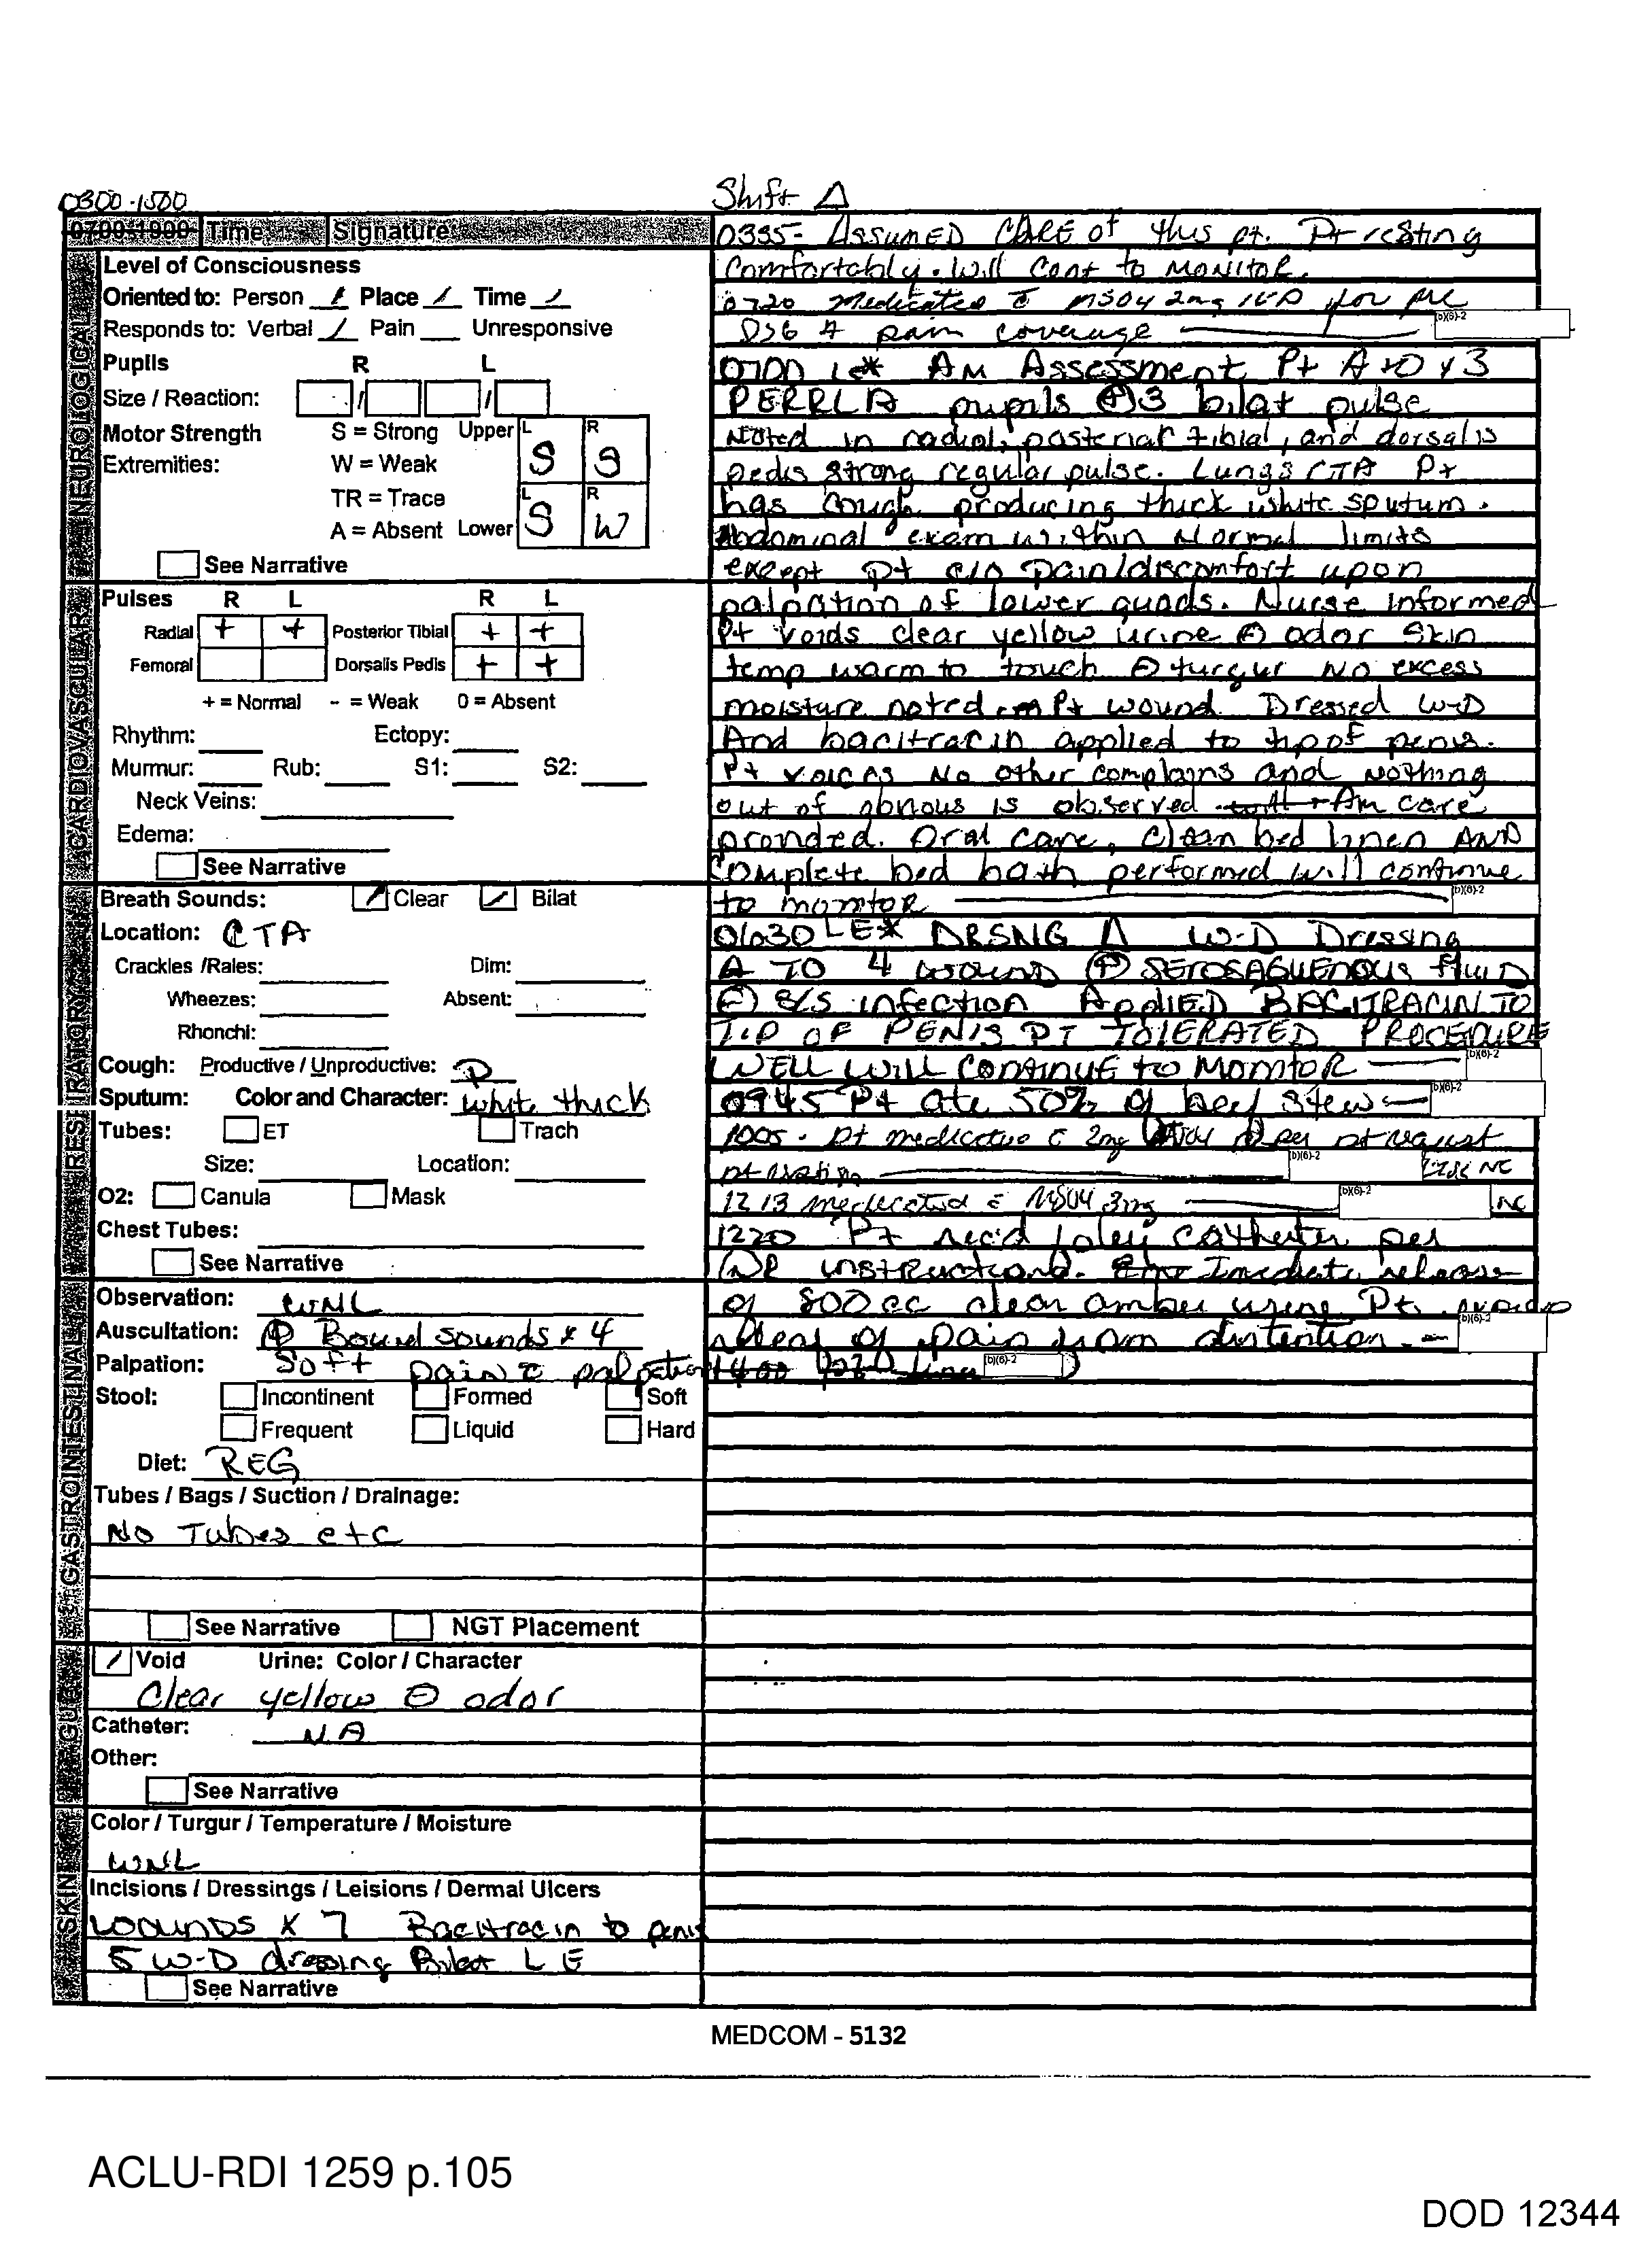 0300-1500
Shift Δ
0700-1900 Time Signature
NEUROLOGICAL
Level of Consciousness
Oriented to: Person / Place / Time /
Responds to: Verbal / Pain Unresponsive
Pupils R L
Size / Reaction: / /
Motor Strength S = Strong Upper L S R S
Extremities: W = Weak
TR = Trace
A = Absent Lower L S R W
See Narrative
CARDIOVASCULAR
Pulses R L R L
Radial + + Posterior Tibial + +
Femoral Dorsalis Pedis + +
+ = Normal - = Weak 0 = Absent
Rhythm: Ectopy:
Murmur: Rub: S1: S2:
Neck Veins:
Edema:
See Narrative
RESPIRATORY
Breath Sounds: / Clear / Bilat
Location: CTA
Crackles /Rales: Dim:
Wheezes: Absent:
Rhonchi:
Cough: Productive / Unproductive: P
Sputum: Color and Character: white thick
Tubes: ET Trach
Size: Location:
O2: Canula Mask
Chest Tubes:
See Narrative
GASTROINTESTINAL
Observation: WNL
Auscultation: ⊕ Bowel sounds x 4
Palpation: Soft pain c palpation
Stool: Incontinent Formed Soft
Frequent Liquid Hard
Diet: REG
Tubes / Bags / Suction / Drainage:
No Tubes etc
See Narrative NGT Placement
GU
/ Void Urine: Color / Character
Clear yellow ⊖ odor
Catheter: NA
Other:
See Narrative
SKIN
Color / Turgur / Temperature / Moisture
WNL
Incisions / Dressings / Leisions / Dermal Ulcers
wounds x 7 Bacitracin to penis
5 W-D dressing Bilat L E
See Narrative
0335- Assumed CARE of this pt. Pt resting
comfortably. Will cont to MONITOR.
0720 Medicated c MSO4 2mg IVP for pre
DSG Δ pain coverage (b)(6)-2
0700 LE* AM Assessment Pt A+O x3
PERRLA pupils ⊕3 bilat pulse
Noted in radial, posterial tibial, and dorsalis
pedis strong regular pulse. Lungs CTA Pt
has cough producing thick white sputum.
Abdominal exam within Normal limits
except pt c/o pain/discomfort upon
palpation of lower quads. Nurse informed
Pt voids clear yellow urine ⊖ odor Skin
temp warm to touch ⊖ turgur No excess
moisture noted Pt wound Dressed W-D
And bacitracin applied to tip of penis.
Pt voices No other complains and Nothing
out of obvious is observed Am care
provided. Oral care, clean bed linen AND
complete bed bath performed will continue
to monitor (b)(6)-2
0630 LE* DRSNG Δ W-D Dressing
Δ TO 4 wound ⊕ SEROSAGUENOUS FLUID
⊖ S/S infection APPLIED BACITRACIN TO
TIP OF PENIS PT TOLERATED PROCEDURE
WELL WILL CONTINUE to MONITOR (b)(6)-2
0945 Pt ate 50% of beef stew (b)(6)-2
1005 - pt medicated c 2mg per pt request
pt resting (b)(6)-2 NC
1213 medicated c MSO4 3mg (b)(6)-2 NC
1220 Pt rec'd foley catheter per
DR instructions. Imediate release
of 800cc clear amber urine, Pt.
relief of pain from distention. (b)(6)-2
1400 (b)(6)-2
MEDCOM - 5132
ACLU-RDI 1259 p.105
DOD 12344